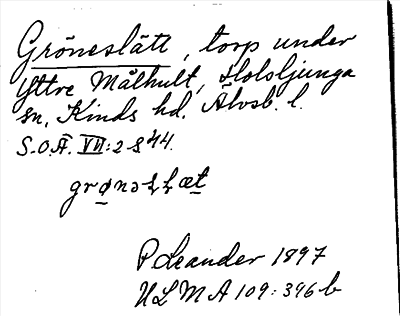 Gröneslätt, torp under
Yttre Målhult, Holsljunga
sn, Kinds hd. Älvsb. l.
S.O.Ä. VII:2 s 44.
grønəslæt
P Leander 1897
ULMA 109:396 b